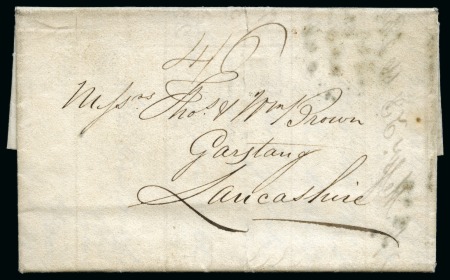 4/6
Messrs Thos & Wm Brown
Garstang
Lancashire